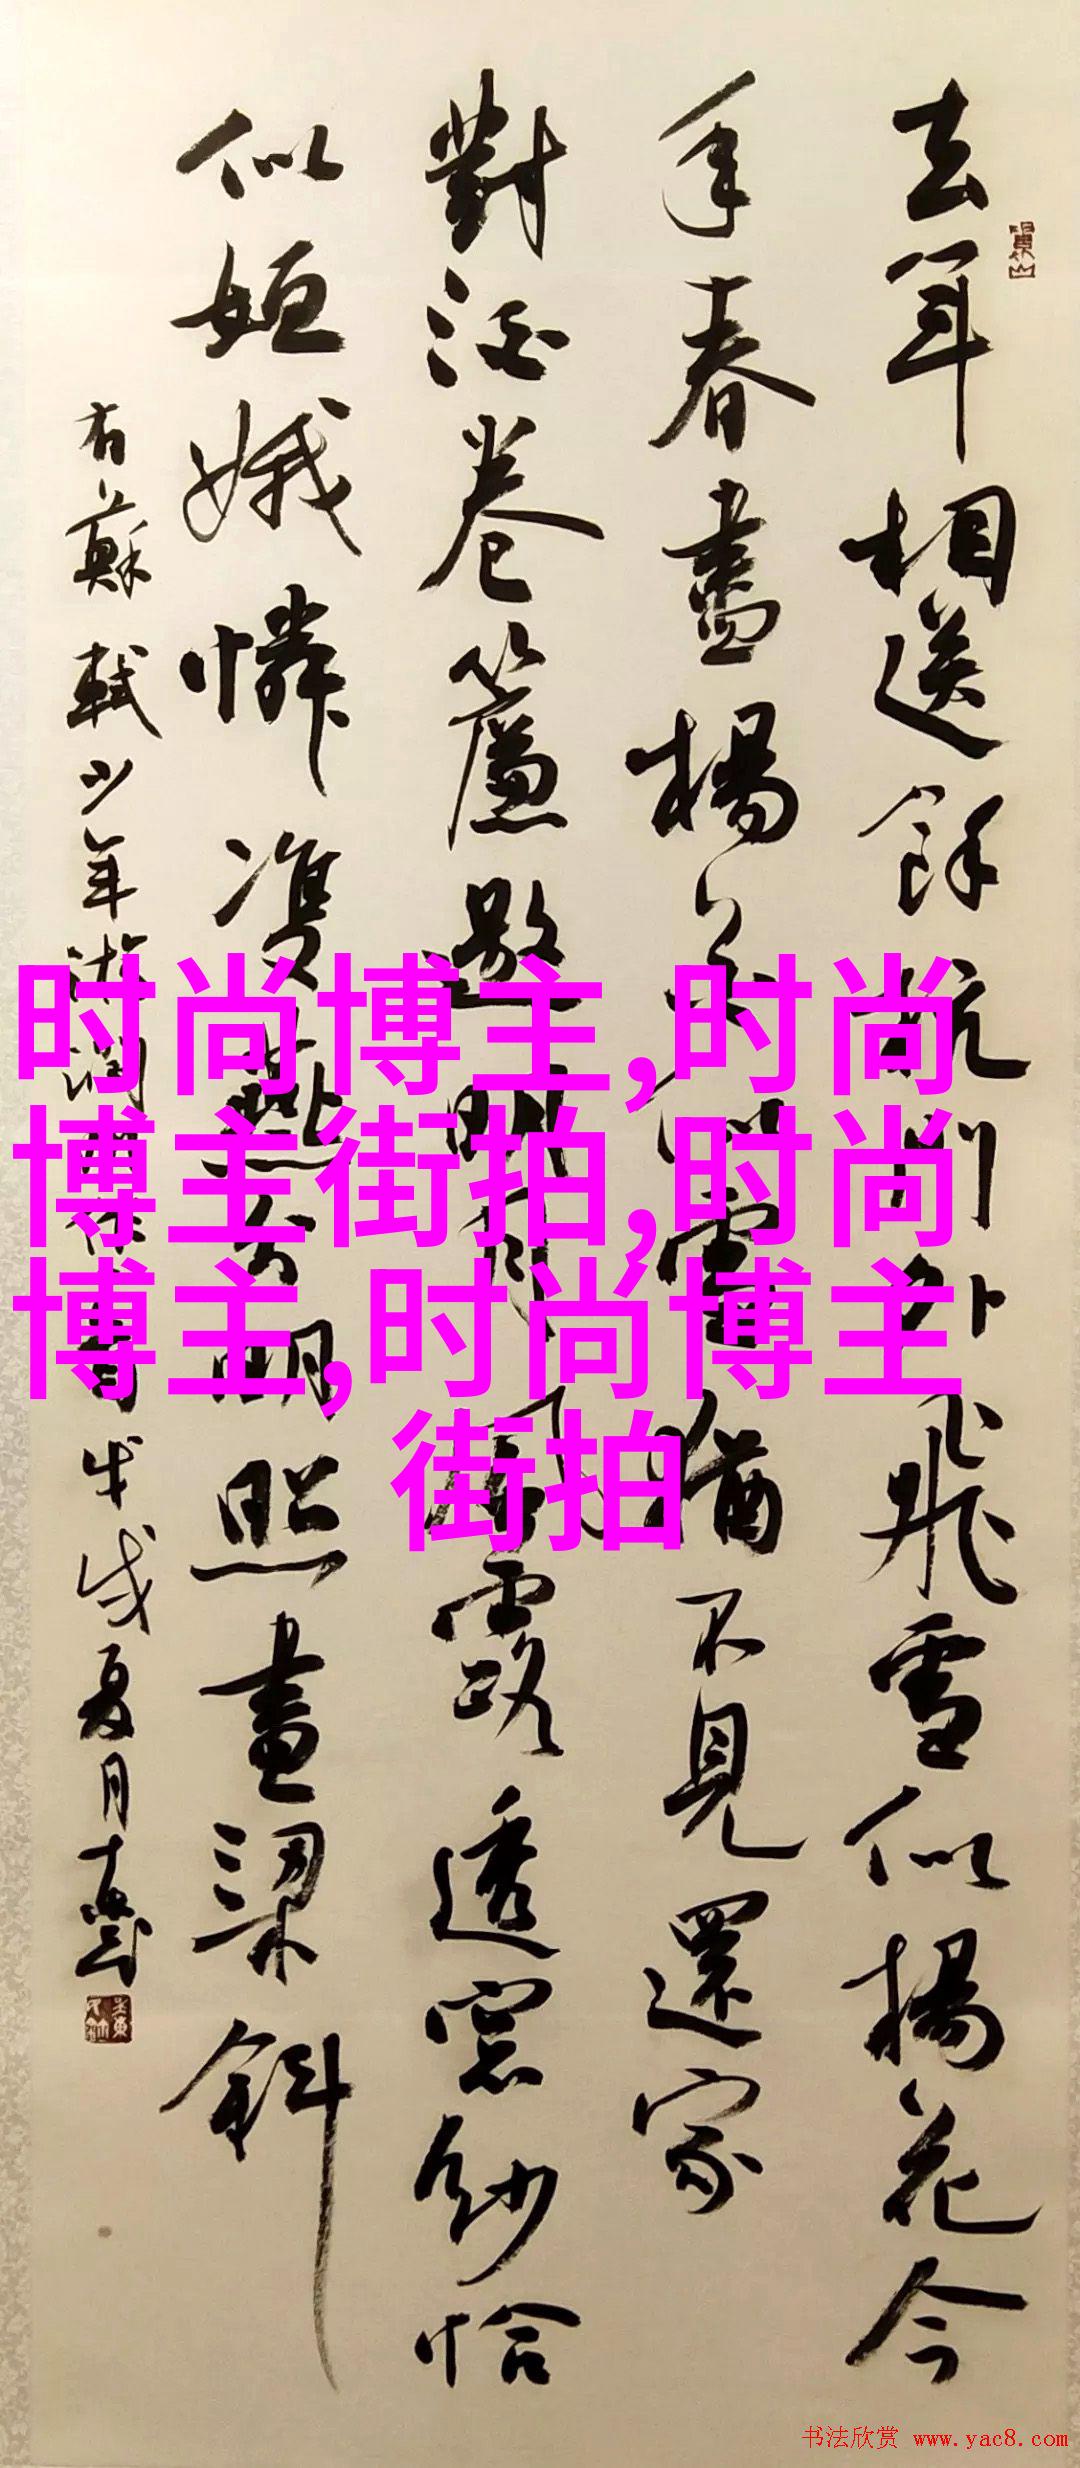 去年相送餘杭門外飛雪似楊花今
年春盡楊花似雪猶不見還家
對酒卷簾邀明月風露透窗紗恰
似姮娥憐雙燕分明照畫梁斜
右蘇軾少年游潤州作
戊戌夏月
时尚博主,时尚
博主街拍,时尚
博主,时尚博主
街拍
书法欣赏 www.yac8.com